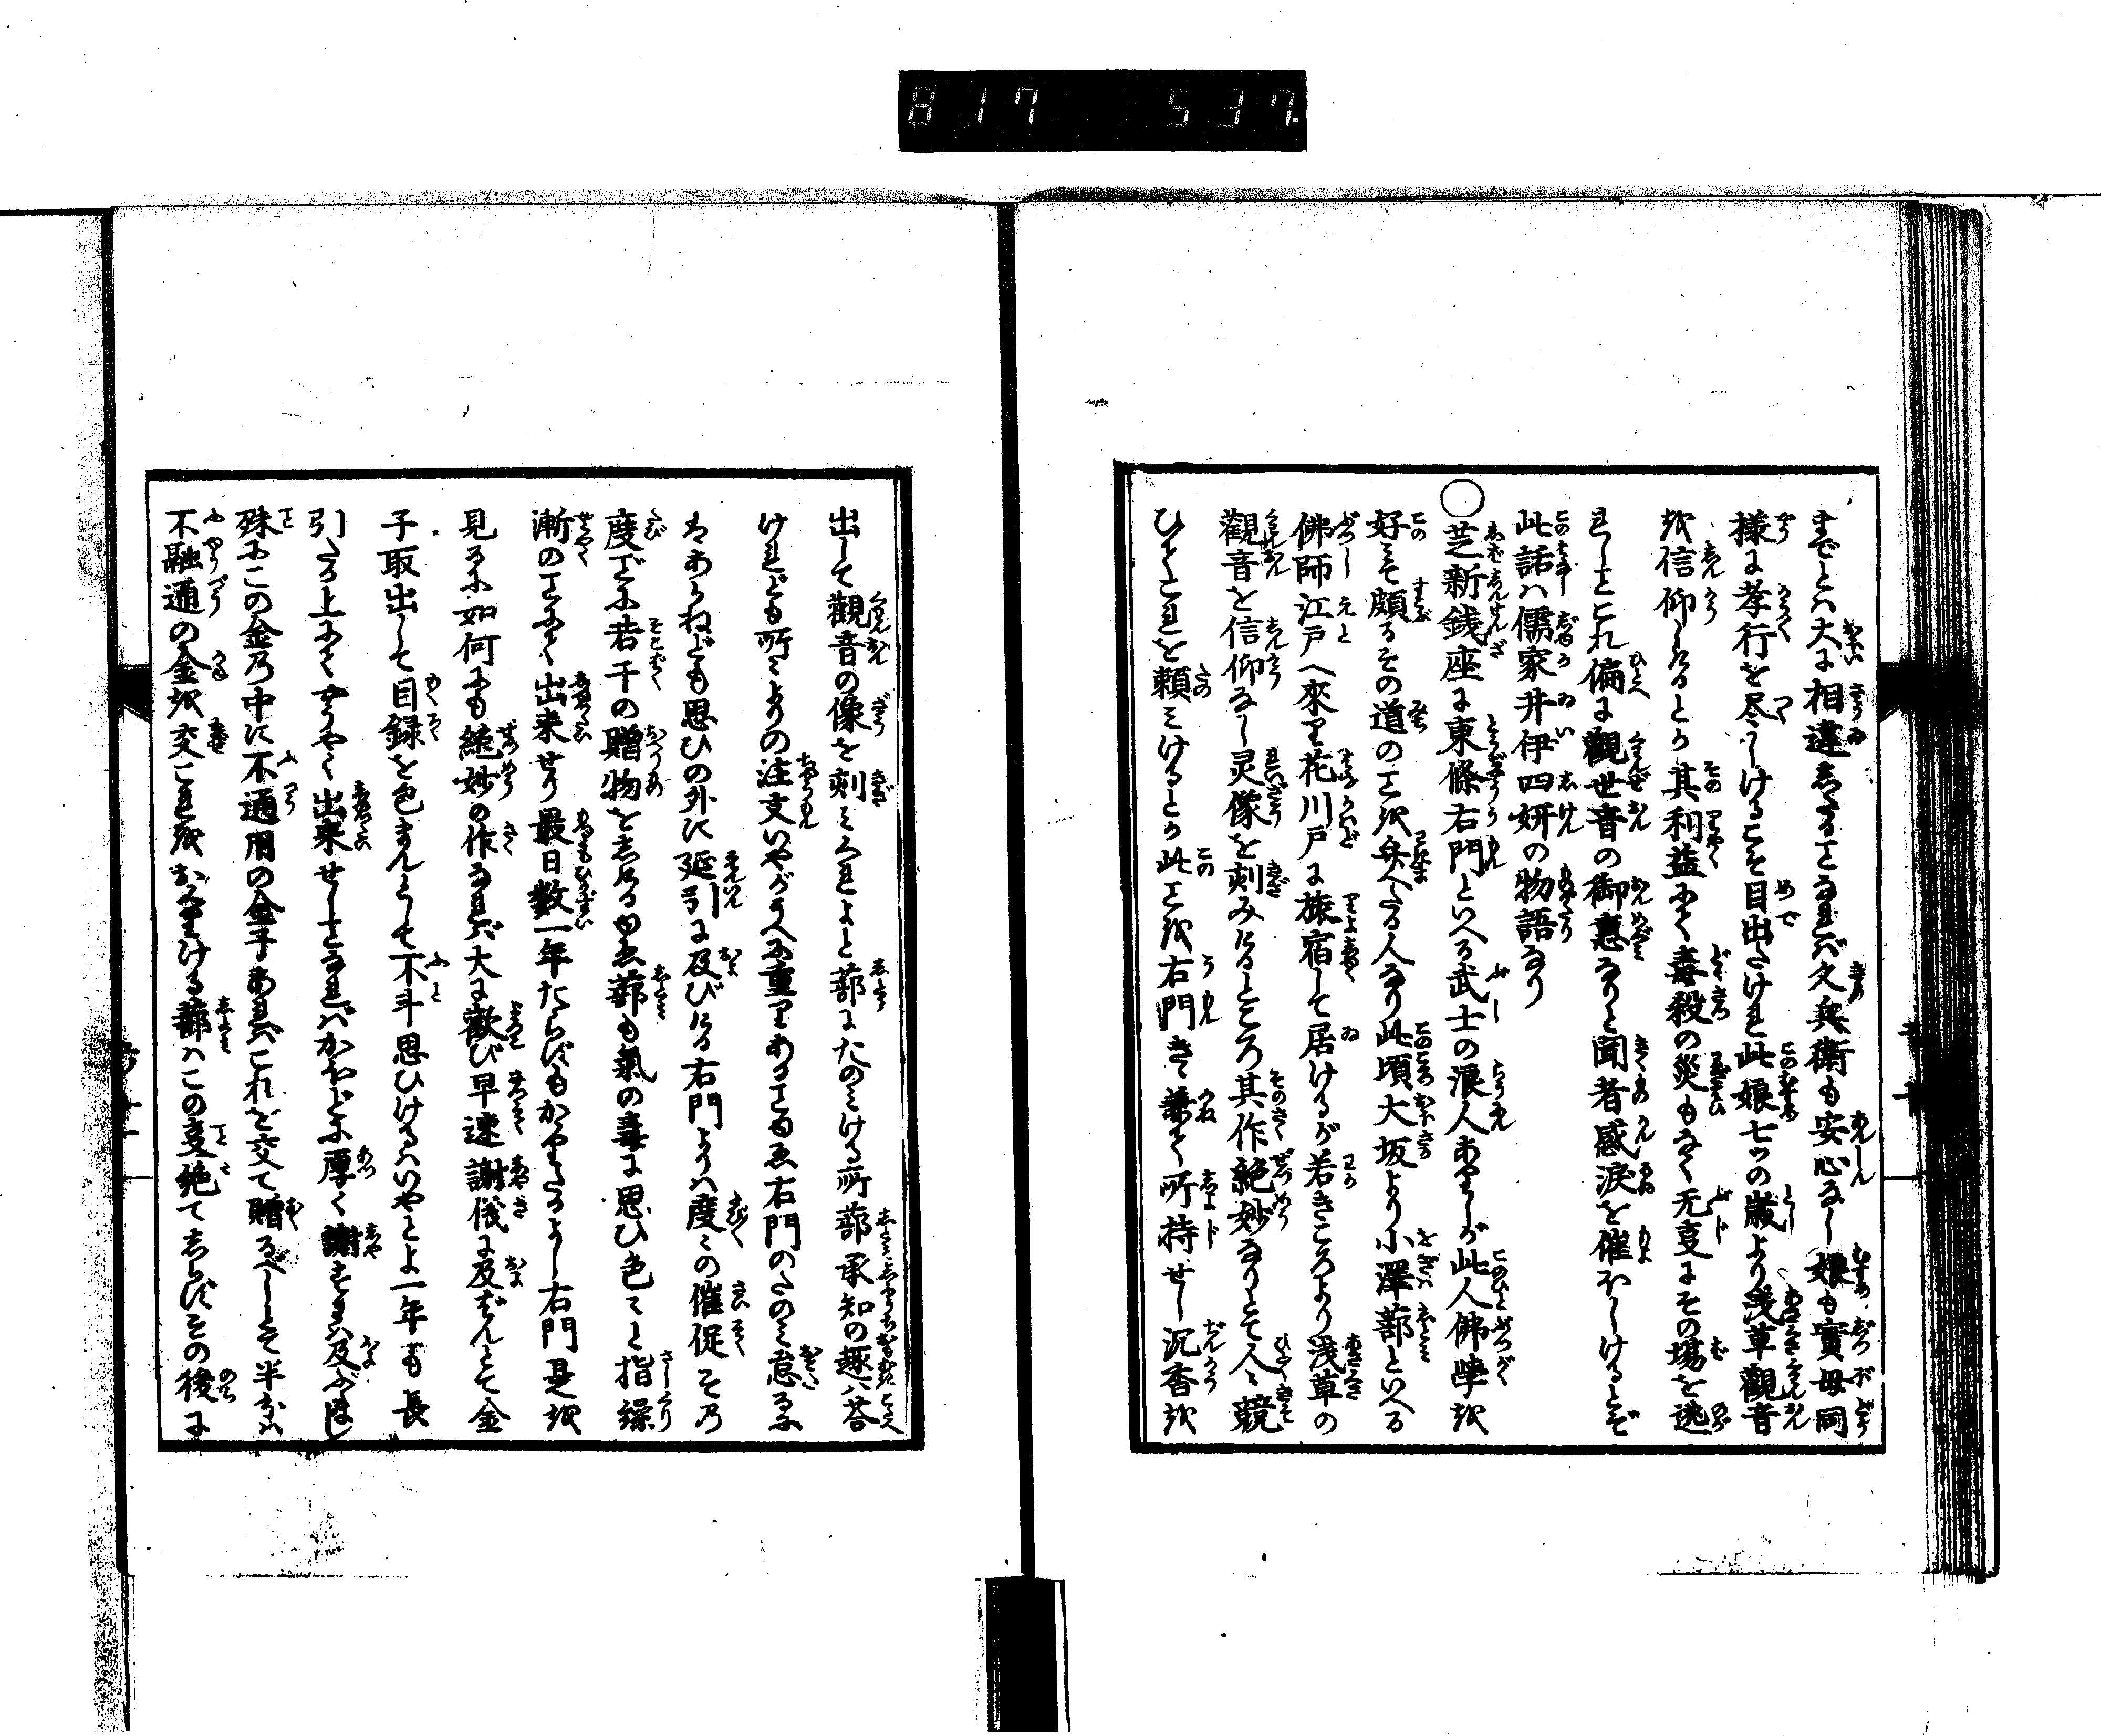 817 537.
までとハ大に相違したることなれバ久兵衛も安心なし娘も實母同
樣に孝行を尽しけるこそ目出たけれ此娘七ツの歳より浅草觀音
を信仰しけるとか其利益にて毒殺の災もなく无事にその場を逃
れしこと偏に觀世音の御惠なりと聞者感涙を催ほしけるとぞ
此話ハ儒家井伊四妍の物語なり
○芝新銭座に東條右門といへる武士の浪人ありしが此人佛學を
好ミて頗るその道のことを弁へたる人なり此頃大坂より小澤蔀といへる
佛師江戸へ來り花川戸に旅宿して居けるが若きころより浅草の
觀音を信仰なし灵像を刻みけるところ其作絶妙なりとて人〻競
ひてこれを頼ミけるとか此ことを右門きゝ兼て所持せし沉香を
出して觀音の像を刻ミくれよと蔀にたのミける所蔀承知の趣ハ答
けれども所〻よりの注文いやがうへに重りあることゆゑ右門のたのミ怠るに
ハあらねども思ひの外に延引に及びける右門よりハ度〻の催促その
度ごとに若干の贈物をしけるゆゑ蔀も氣の毒に思ひ色〻と指繰
漸のことにて出来せり最日数一年たらずもかゝりたるよし右門是を
見るに如何にも絶妙の作なれバ大に歓び早速謝儀に及ばんとて金
子取出して目録を包まんとして不斗思ひけるハいやとよ一年も長
引たる上にてやうやく出来せしことなれバかほどに厚く謝するに及ぶまじ
殊にこの金の中に不通用の金子あれバこれを交て贈るべしとて半ハ
不融通の金を交これをおくりける蔀ハこの事絶てしらずその後に